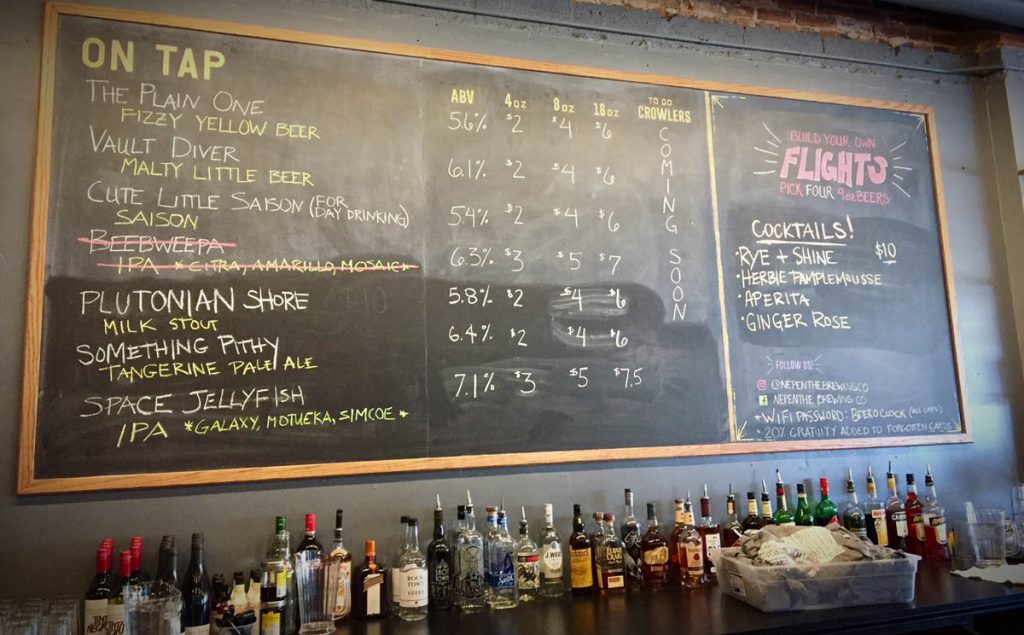 ON TAP
ABV 4oz 8oz 16oz TO GO CROWLERS
THE PLAIN ONE 5.6% $2 $4 $6
FIZZY YELLOW BEER
VAULT DIVER 6.1% $2 $4 $6
MALTY LITTLE BEER
CUTE LITTLE SAISON (FOR DAY DRINKING) 5.4% $2 $4 $6
SAISON
BEEBWEEPA 6.3% $3 $5 $7
IPA *CITRA, AMARILLO, MOSAIC*
PLUTONIAN SHORE 5.8% $2 $4 $6
MILK STOUT
SOMETHING PITHY 6.4% $2 $4 $6
TANGERINE PALE ALE
SPACE JELLYFISH 7.1% $3 $5 $7.5
IPA *GALAXY, MOTUEKA, SIMCOE*
COMING SOON
BUILD YOUR OWN
FLIGHTS
PICK FOUR 4oz BEERS
COCKTAILS!
RYE + SHINE $10
• HERBIE PAMPLEMOUSSE
• APERITA
• GINGER ROSE
FOLLOW US!
@NEPENTHEBREWINGCO
NEPENTHE.BREWING.CO
*WIFI PASSWORD: BEEROCLOCK (ALL CAPS)
*20% GRATUITY ADDED TO FORGOTTEN CARDS